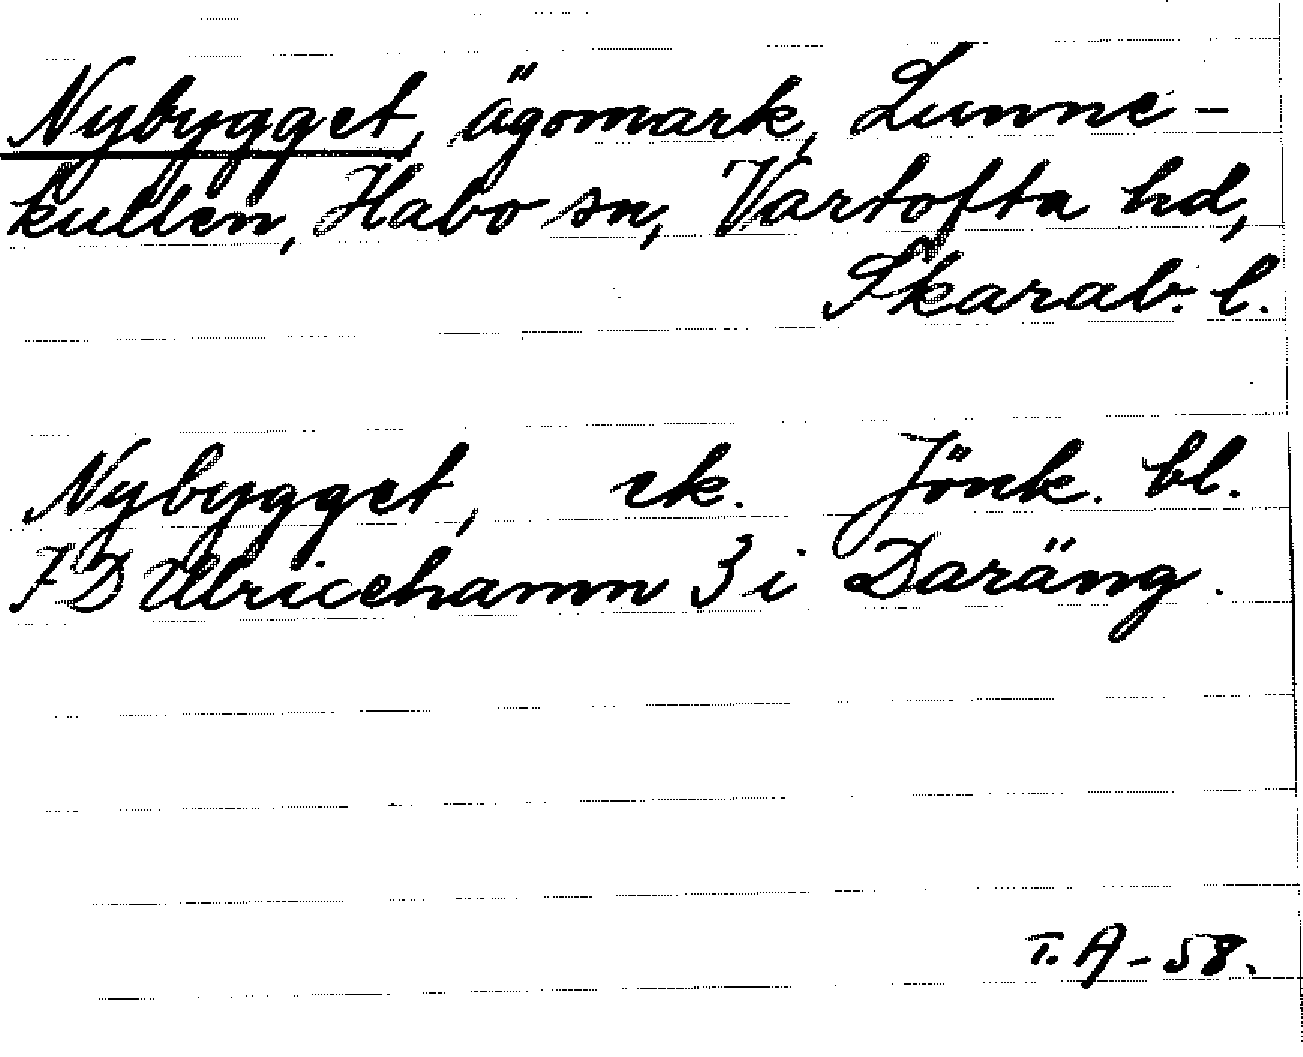 Nybygget, ägomark, Lunne-
kullen, Habo sn, Vartofta hd,
Skarab. l.
Nybygget, ek. Jönk. bl.
7 D Ulricehamn 3 i Daräng.
T. A - 58.